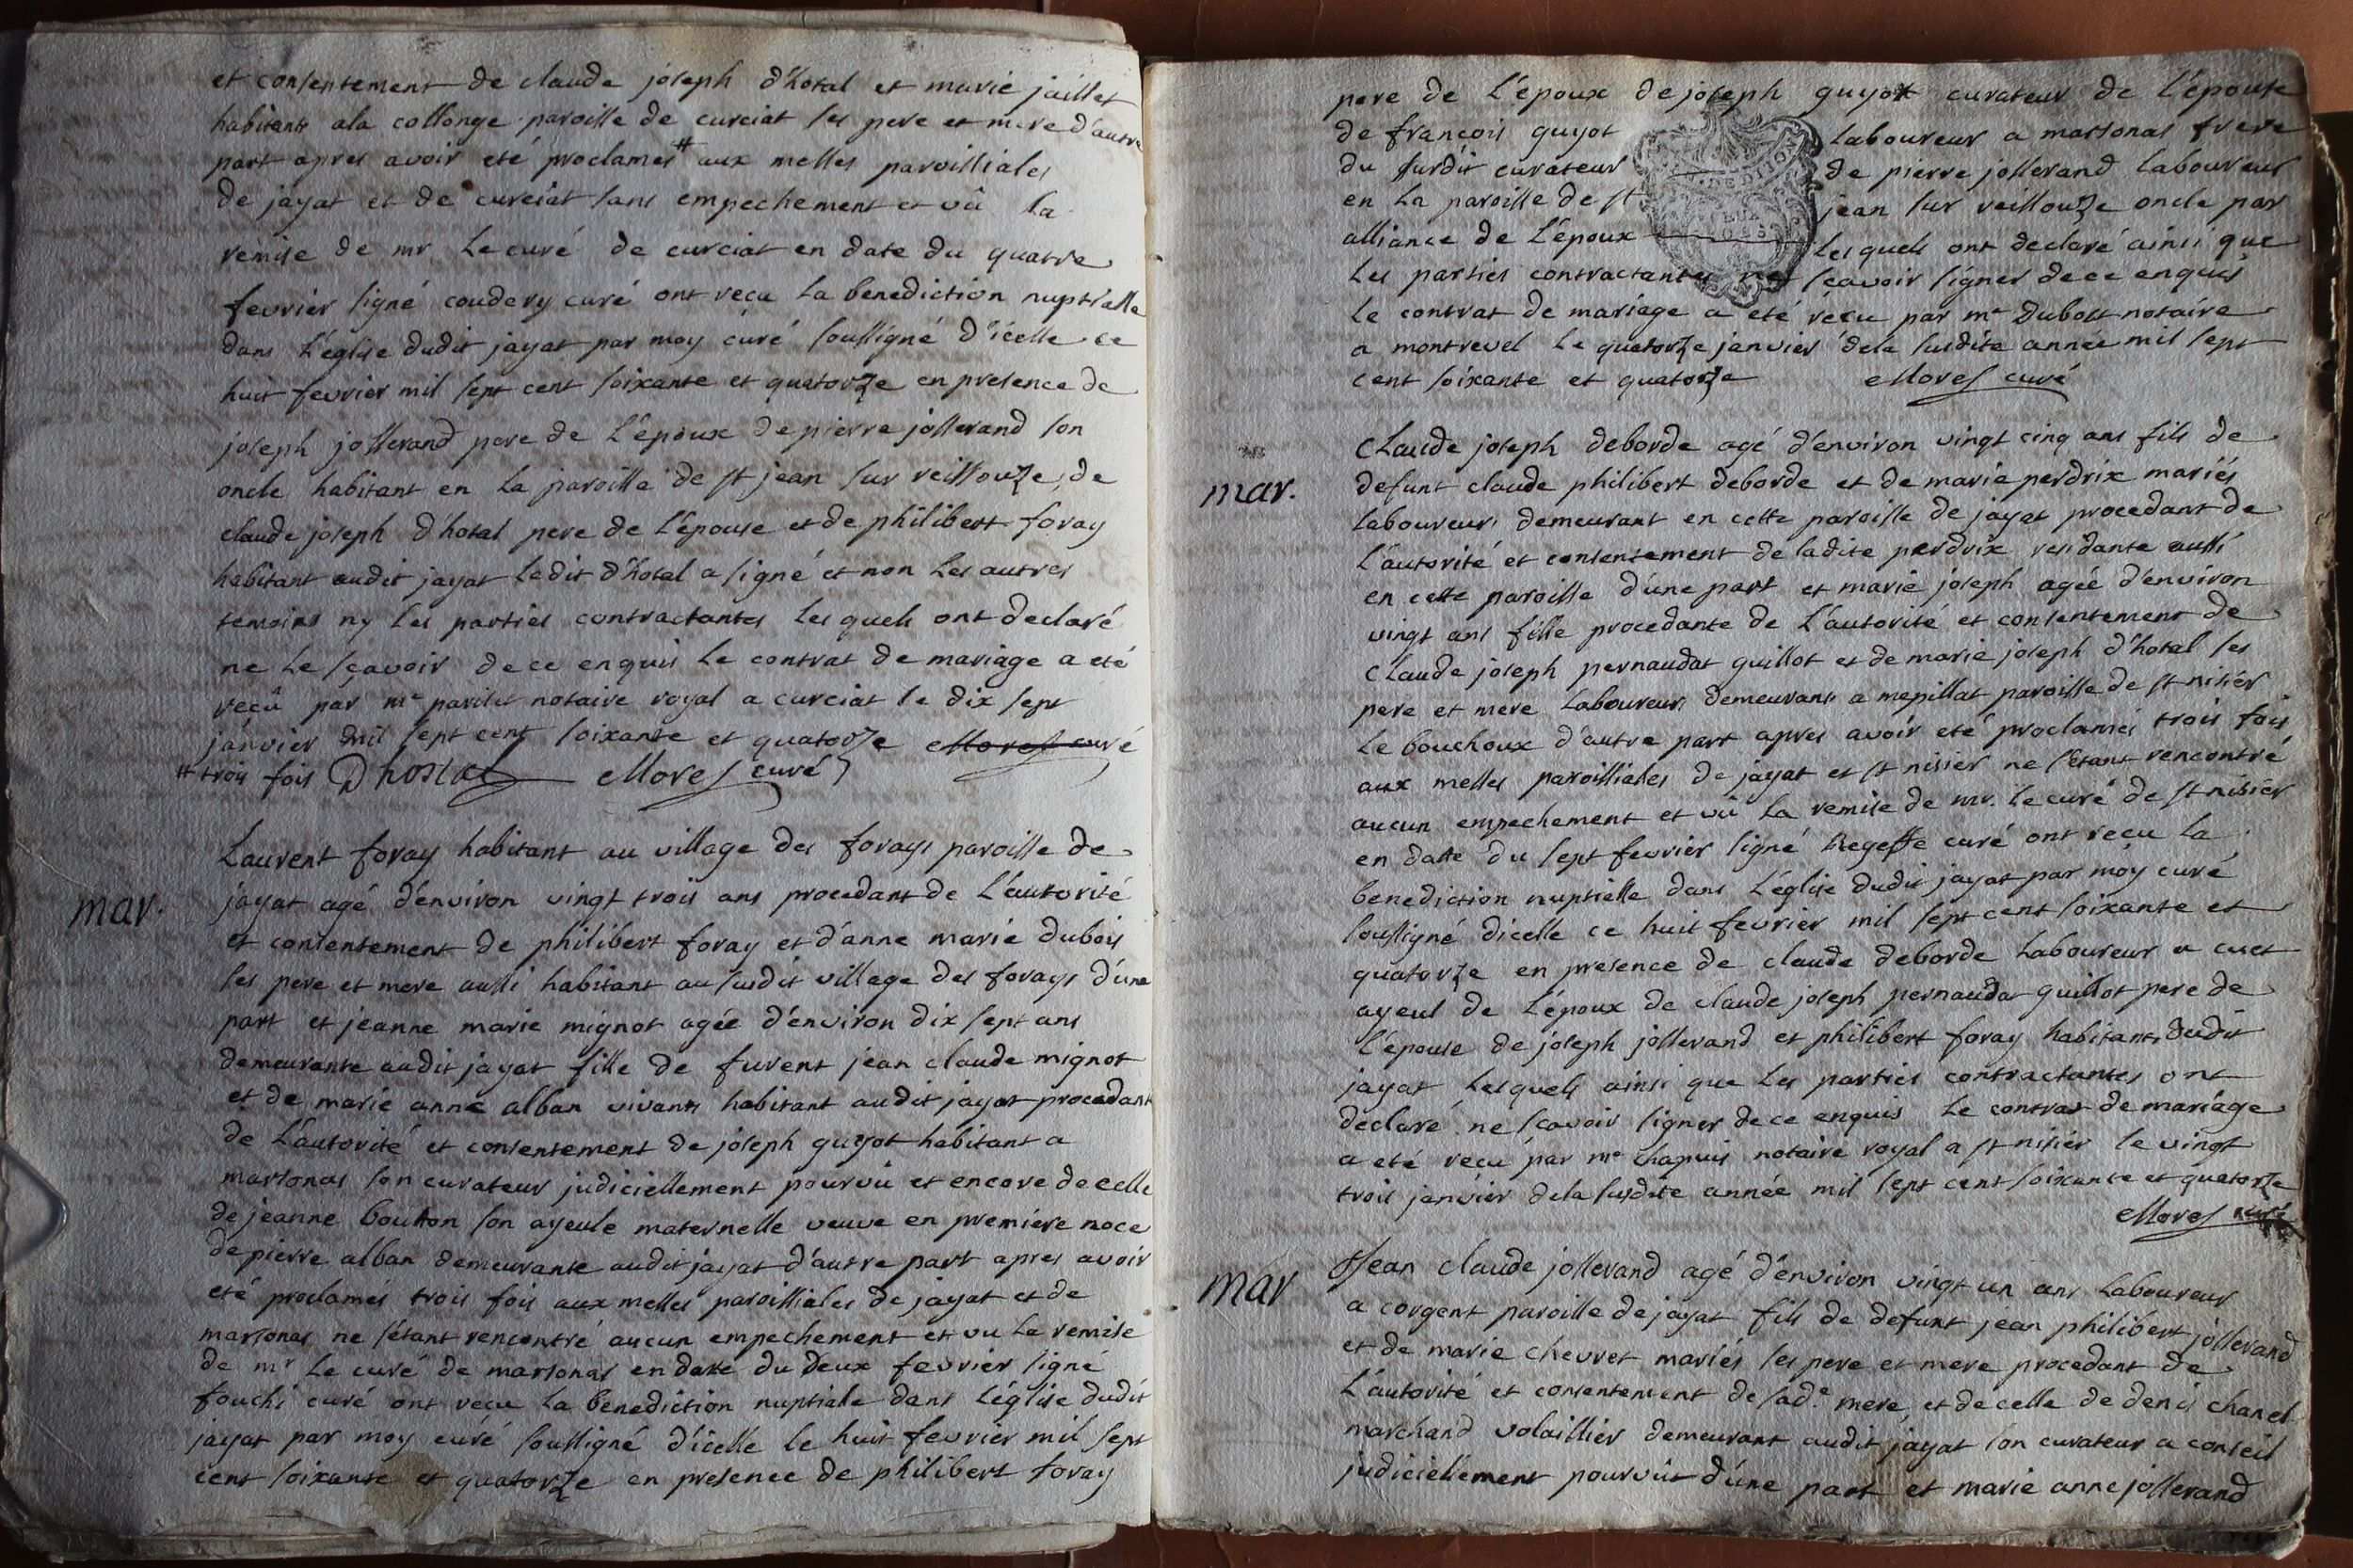 et consentement de claude joseph d'hotal et marie jaillet
habitants ala collonge paroisse de curciat ses pere et mere d'autre
part apres avoir eté proclames # aux messes paroissiales
de jayat et de curciat sans empechement et vû la
remise de mr le curé de curciat en date du quatre
fevrier signé coudery curé ont reçu la benediction nuptialle
dans l'eglise dudit jayat par moy curé soussigné d'icelle ce
huit fevrier mil sept cent soixante et quatorze en presence de
joseph josserand pere de l'époux de pierre josserand son
oncle habitant en la paroisse de st jean sur reissouze, de
claude joseph d'hotal pere de l'épouse et de philibert foray
habitant audit jayat ledit d'hotal a signé et non les autres
temoins ny les parties contractantes lesquels ont declaré
ne le sçavoir de ce enquis le contrat de mariage a eté
reçû par me notaire royal a curciat le dix sept
janvier mil sept cent soixante et quatorze Morel curé
# trois fois Dhostal Morel curé
mar.
Laurent foray habitant au village des forays paroisse de
jayat agé d'environ vingt trois ans procedant de l'autorité
et consentement de philibert foray et d'anne marie dubois
ses pere et mere aussi habitant au susdit village des forays d'une
part et jeanne marie mignot agée d'environ dix sept ans
demeurante audit jayat fille de furent jean claude mignot
et de marie anne alban vivants habitant audit jayat procedant
de l'autorité et consentement de joseph guyot habitant a
marsonas son curateur judiciellement pourvû et encore de celle
de jeanne bouton son ayeule maternelle veuve en premiere noce
de pierre alban demeurante audit jayat d'autre part apres avoir
eté proclamés trois fois aux messes paroissiales de jayat et de
marsonas ne s'étant rencontré aucun empechement et vu la remise
de mr le curé de marsonas en date du deux fevrier signé
fouchi curé ont reçu la benediction nuptiale dans l'église dudit
jayat par moy curé soussigné d'icelle le huit fevrier mil sept
cent soixante et quatorze en presence de philibert foray
pere de l'époux de joseph guyot curateur de l'épouse
de françois guyot laboureur a marsonas frere
du susdit curateur de pierre josserand laboureur
en la paroisse de st jean sur reissouze oncle par
alliance de l'époux lesquels ont declaré ainsi que
les parties contractantes ne sçavoir signer de ce enquis
le contrat de mariage a eté reçu par me dubost notaire
a montrevel le quatorze janvier dela susdite année mil sept
cent soixante et quatorze Morel curé
mar.
Claude joseph deborde agé d'environ vingt cinq ans fils de
defunt claude philibert deborde et de marie perdrix mariés
laboureurs demeurant en cette paroisse de jayat procedant de
l'autorité et consentement de ladite perdrix residante aussi
en cette paroisse d'une part et marie joseph agée d'environ
vingt ans fille procedante de l'autorité et consentement de
Claude joseph pernaudat guillot et de marie joseph d'hotal ses
pere et mere laboureurs demeurants a mepillat paroisse de st nisier
le bouchoux d'autre part apres avoir eté proclamés trois fois
aux messes paroissiales de jayat et st nisier ne s'étant rencontré
aucun empechement et vû la remise de mr. le curé de st nisier
en datte du sept fevrier signé Regeffe curé ont reçu la
benediction nuptielle dans l'église dudit jayat par moy curé
soussigné dicelle ce huit fevrier mil sept cent soixante et
quatorze en presence de claude deborde laboureur a cuet
ayeul de l'époux de claude joseph pernaudat guillot pere de
l'épouse de joseph josserand et philibert foray habitants dudit
jayat lesquels ainsi que les parties contractantes ont
declaré ne sçavoir signer de ce enquis le contrat de mariage
a eté reçu par me chapuis notaire royal a st nisier le vingt
trois janvier dela susdite année mil sept cent soixante et quatorze
Morel curé
mar
Jean claude josserand agé d'environ vingt un ans laboureur
a corgent paroisse de jayat fils de defunt jean philibert josserand
et de marie chevret mariés ses pere et mere procedant de
l'autorité et consentement de sade mere et de celle de denis chanel
marchand volaillier demeurant audit jayat son curateur a conseil
judiciellement pourvût d'une part et marie anne josserand